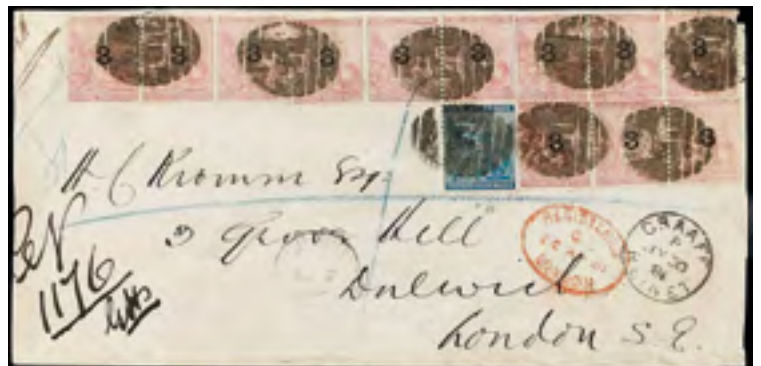 3 3 3 3 3 3 3
3 3 3
H. C. Kromm Esq
3 Grove Hill
Dulwich
London S. E.
REGISTERED
LONDON
GRAAFF
REINET
1176